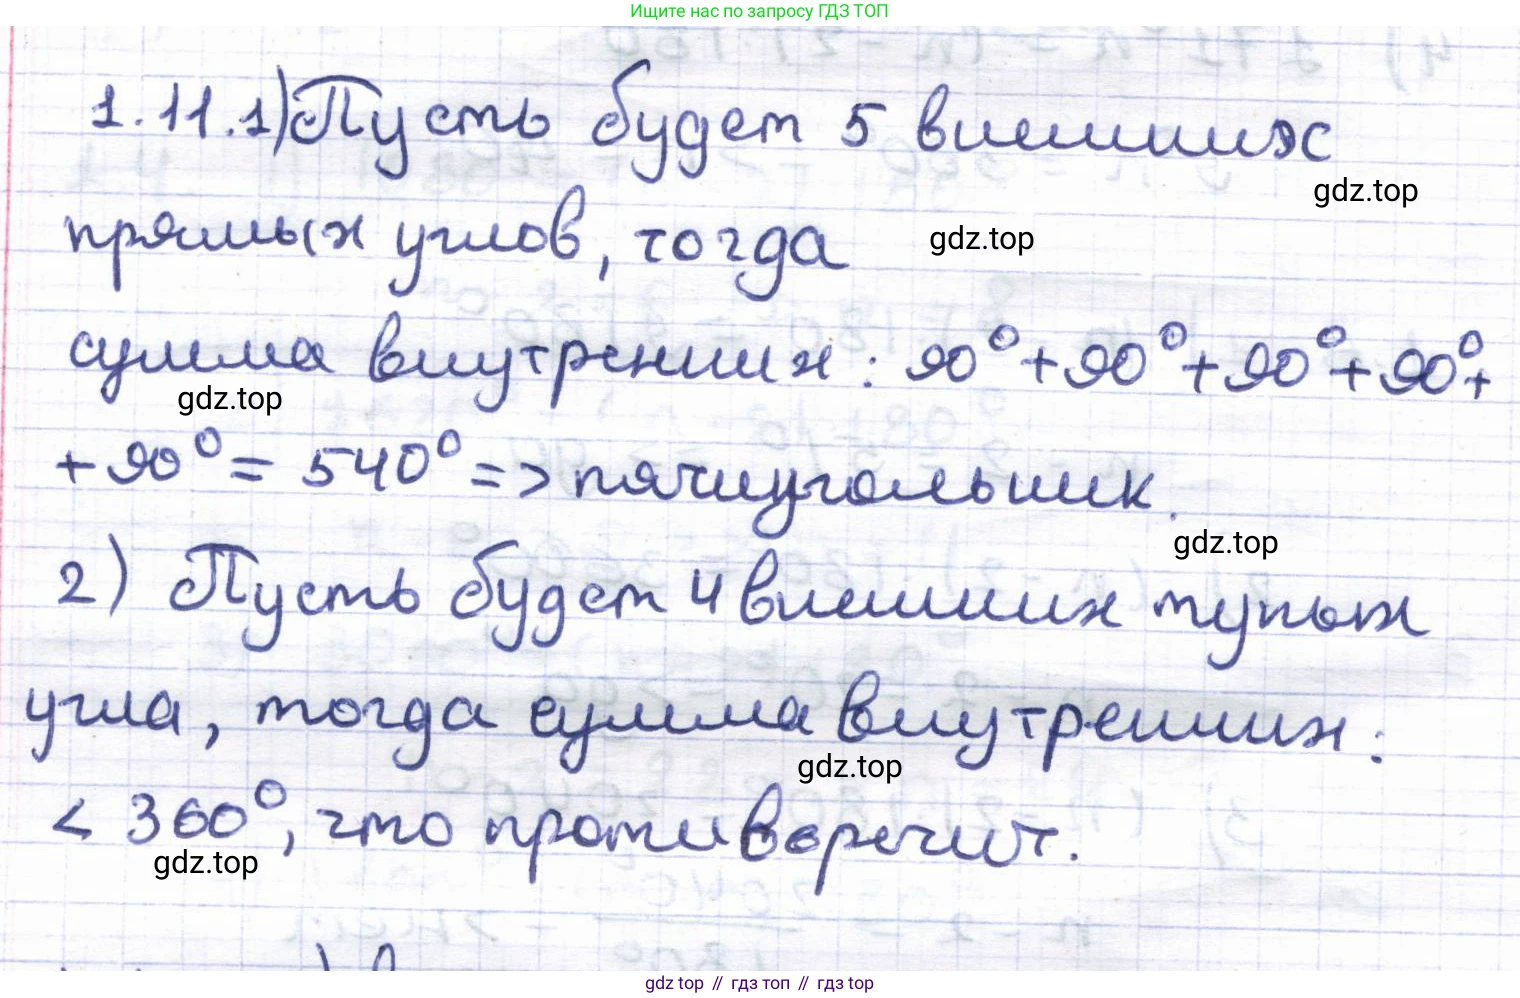 Ищите нас по запросу ГДЗ ТОП
1.11.1) Пусть будет 5 внешних
gdz.top
прямых углов, тогда
gdz.top
сумма внутренних: 90°+90°+90°+90°+
gdz.top
+90°=540°=>пятиугольник.
gdz.top
2) Пусть будет 4 внешних тупых
угла, тогда сумма внутренних:
gdz.top
< 360°, что противоречит.
gdz.top
gdz top // гдз топ // гдз top